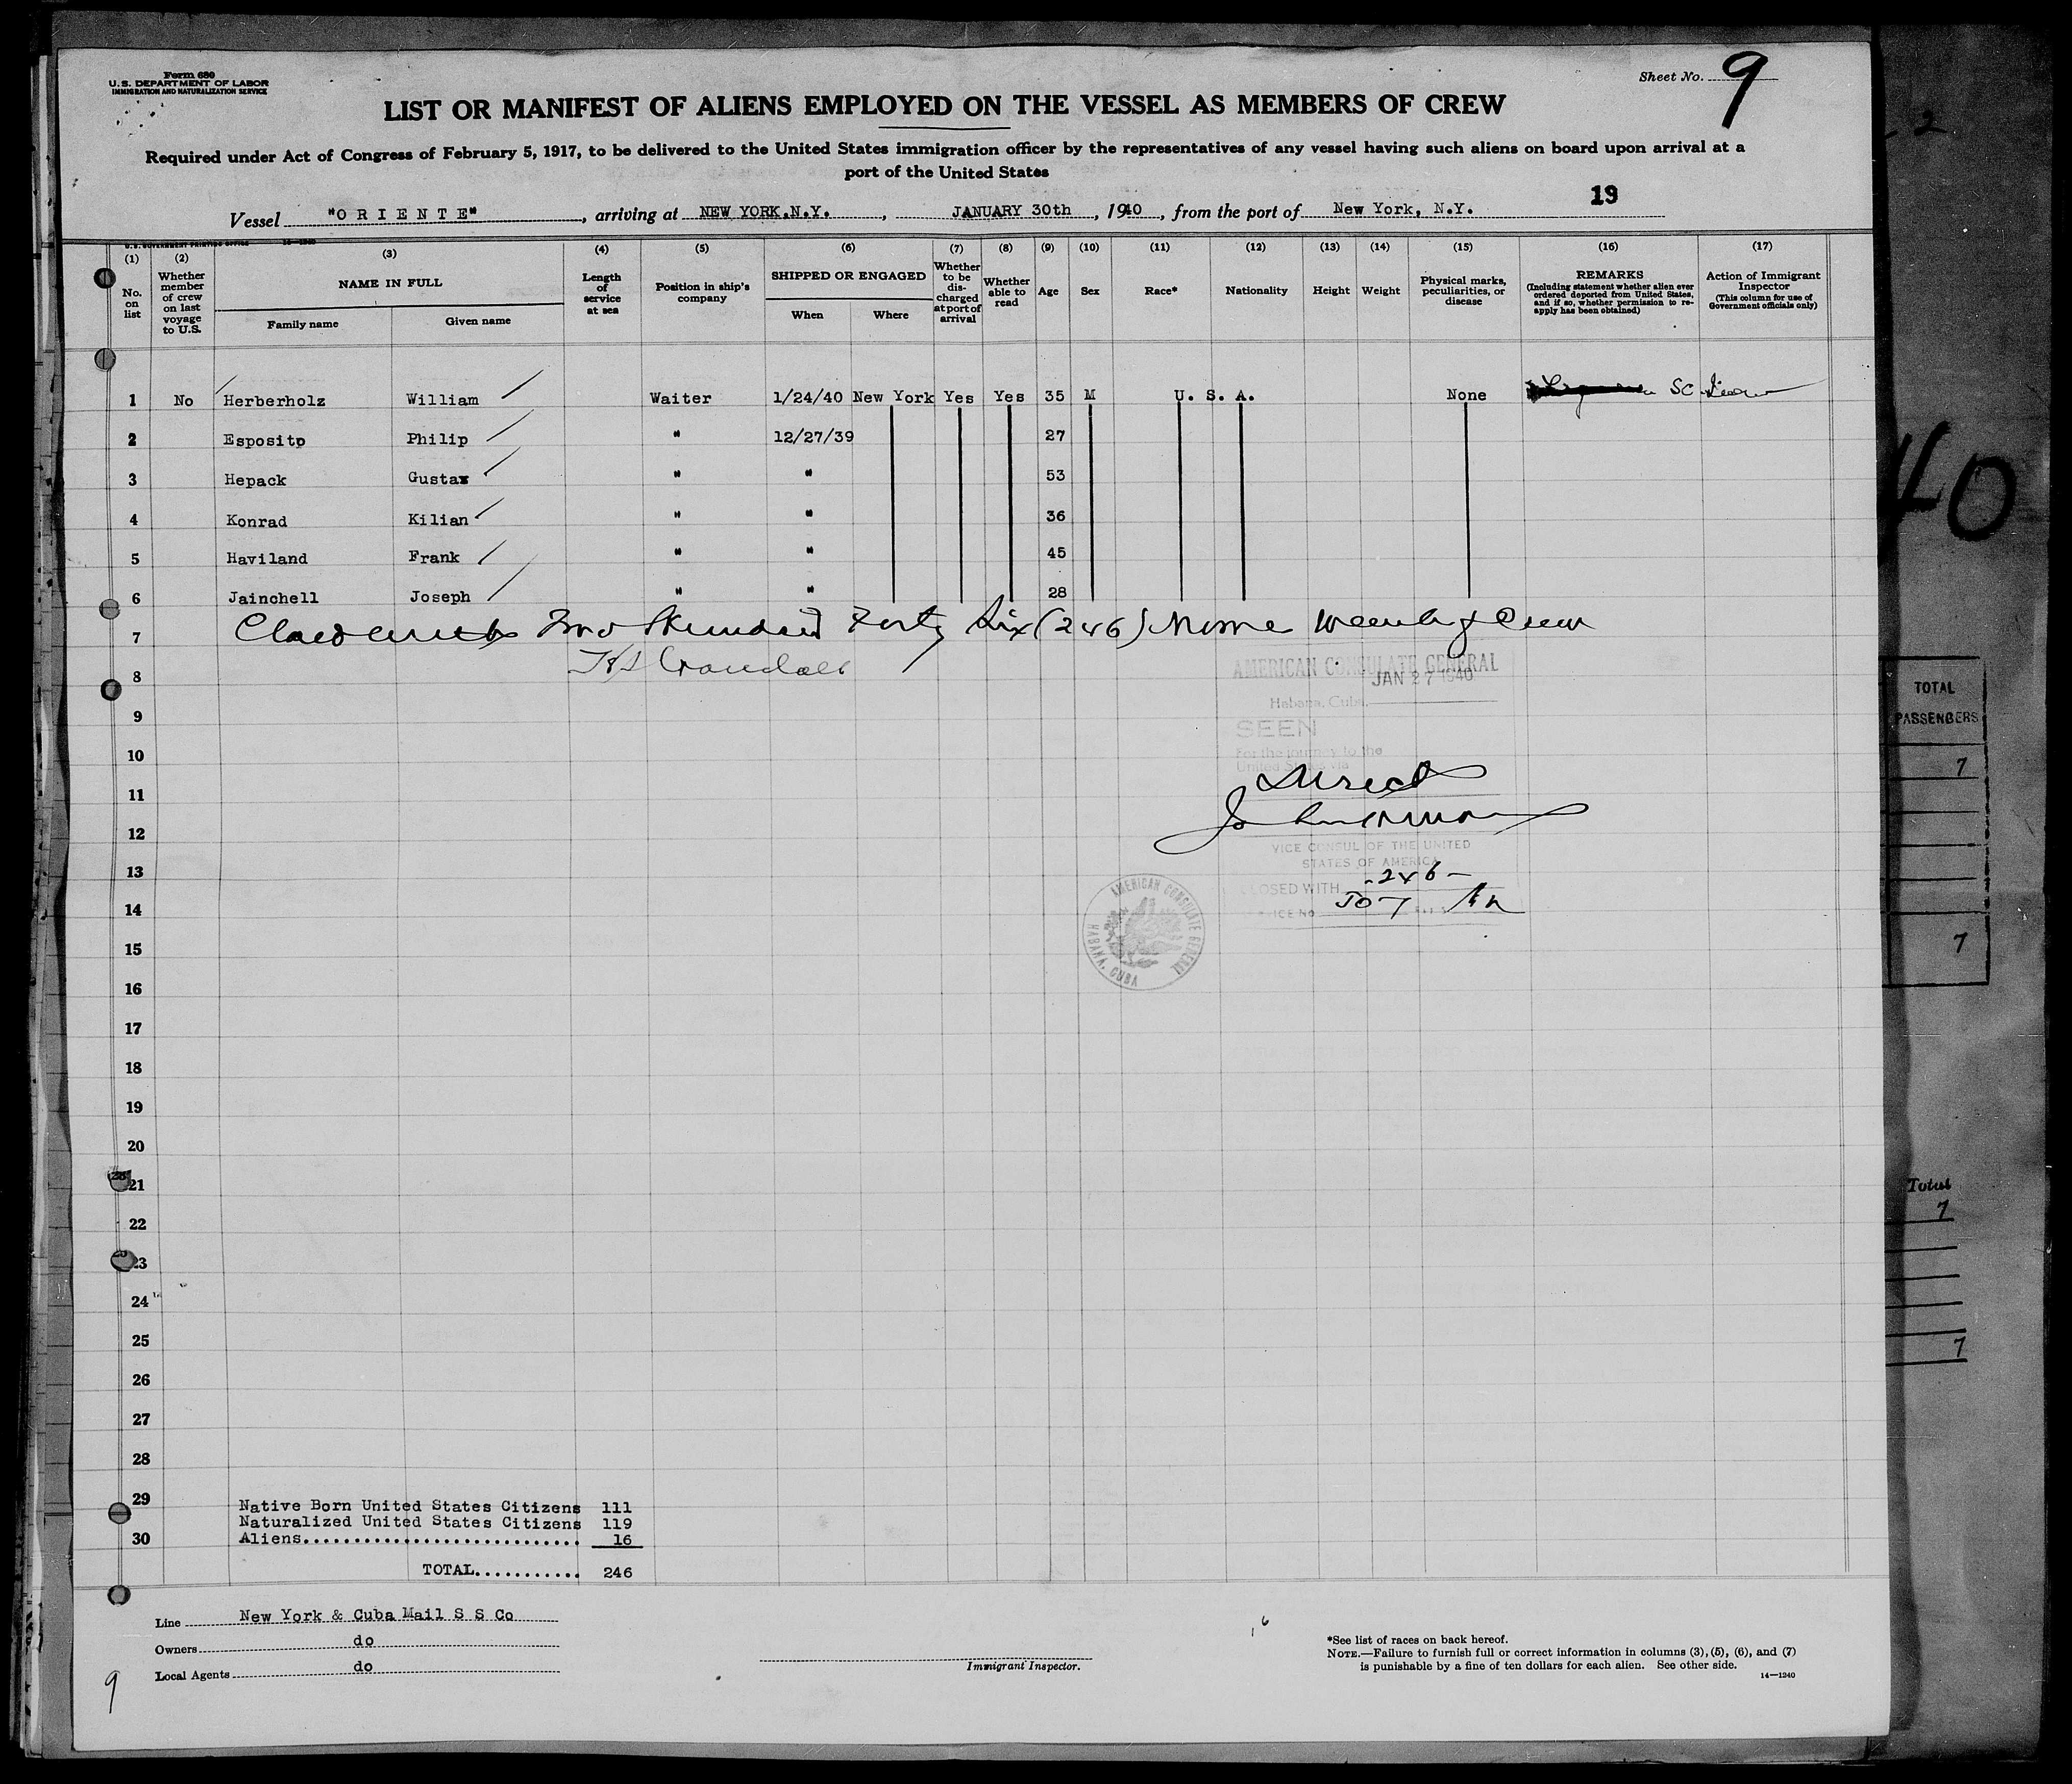 Form 680
U. S. DEPARTMENT OF LABOR
IMMIGRATION AND NATURALIZATION SERVICE
Sheet No. 9
LIST OR MANIFEST OF ALIENS EMPLOYED ON THE VESSEL AS MEMBERS OF CREW
Required under Act of Congress of February 5, 1917, to be delivered to the United States immigration officer by the representatives of any vessel having such aliens on board upon arrival at a
port of the United States
19
Vessel "O R I E N T E", arriving at NEW YORK, N.Y., JANUARY 30th, 1940, from the port of New York, N.Y.
U. S. GOVERNMENT PRINTING OFFICE 14—1240
(1) (2) (3) (4) (5) (6) (7) (8) (9) (10) (11) (12) (13) (14) (15) (16) (17)
No. on list
Whether member of crew on last voyage to U.S.
NAME IN FULL
Family name
Given name
Length of service at sea
Position in ship's company
SHIPPED OR ENGAGED
When
Where
Whether to be discharged at port of arrival
Whether able to read
Age
Sex
Race*
Nationality
Height
Weight
Physical marks, peculiarities, or disease
REMARKS
(Including statement whether alien ever ordered deported from United States, and if so, whether permission to reapply has been obtained)
Action of Immigrant Inspector
(This column for use of Government officials only)
1 No Herberholz William Waiter 1/24/40 New York Yes Yes 35 M U. S. A. None SC
2 Esposito Philip " 12/27/39 27
3 Hepack Gustav " " 53
4 Konrad Kilian " " 36
5 Haviland Frank " " 45
6 Jainchell Joseph " " 28
7 Closed with Two Hundred Forty Six (246) Names Members of Crew
8
AMERICAN CONSULATE GENERAL
JAN 27 1940
Habana, Cuba
9
SEEN
10
For the journey to the
United States via
Direct
11
12
VICE CONSUL OF THE UNITED
STATES OF AMERICA
13
CLOSED WITH -246-
14
SERVICE NO. 507
AMERICAN CONSULATE GENERAL
HABANA, CUBA
15
16
17
18
19
20
21
22
23
24
25
26
27
28
29
Native Born United States Citizens 111
Naturalized United States Citizens 119
30 Aliens........................... 16
TOTAL........... 246
Line New York & Cuba Mail S S Co
Owners do
Local Agents do
Immigrant Inspector.
16
*See list of races on back hereof.
NOTE.—Failure to furnish full or correct information in columns (3), (5), (6), and (7)
is punishable by a fine of ten dollars for each alien. See other side.
14—1240
9
2
40
TOTAL
PASSENGERS
7
7
Total
7
7